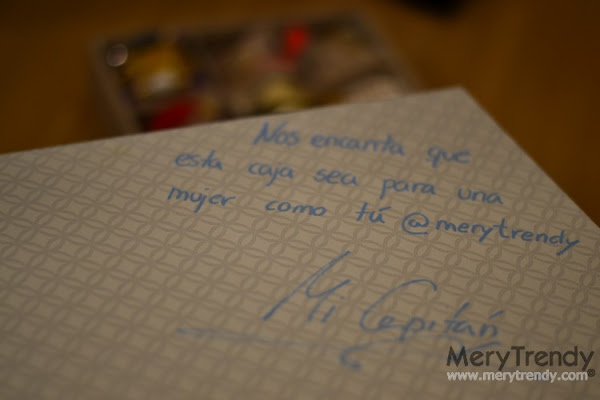 Nos encanta que
esta caja sea para una
mujer como tú @merytrendy
Mi Capitán
MeryTrendy
www.merytrendy.com©